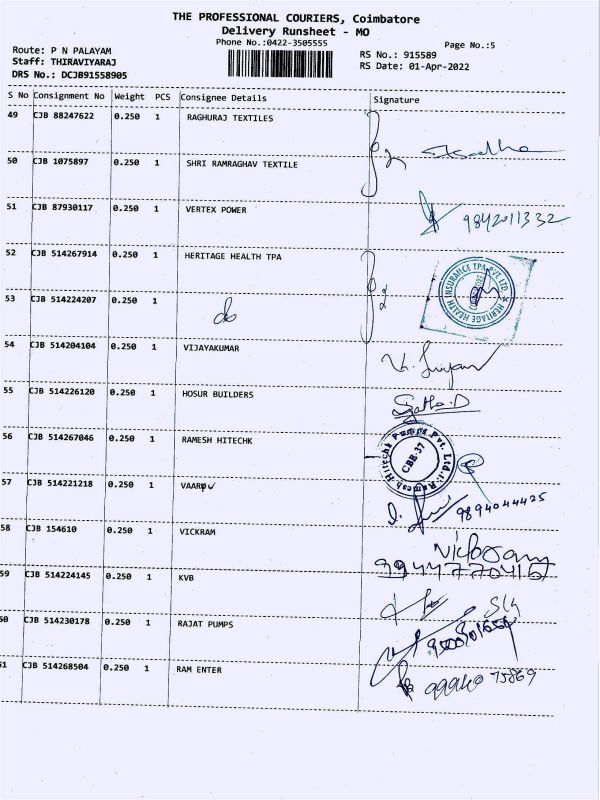 THE PROFESSIONAL COURIERS, Coimbatore
Delivery Runsheet - MO
Phone No.:0422-3505555
Page No.:5
Route: P N PALAYAM
RS No.: 915589
Staff: THIRAVIYARAJ
RS Date: 01-Apr-2022
DRS No.: DCJB91558905
S No Consignment No Weight PCS Consignee Details Signature
49 CJB 88247622 0.250 1 RAGHURAJ TEXTILES
50 CJB 1075897 0.250 1 SHRI RAMRAGHAV TEXTILE
51 CJB 87930117 0.250 1 VERTEX POWER 9842011332
52 CJB 514267914 0.250 1 HERITAGE HEALTH TPA
HERITAGE HEALTH INSURANCE TPA PVT. LTD.
53 CJB 514224207 0.250 1 do
54 CJB 514204104 0.250 1 VIJAYAKUMAR
55 CJB 514226120 0.250 1 HOSUR BUILDERS
56 CJB 514267046 0.250 1 RAMESH HITECHK
Ramesh Hitechk Pumps Pvt. Ltd.
CBE-37
57 CJB 514221218 0.250 1 VAARPU 9894044425
58 CJB 154610 0.250 1 VICKRAM
9944770415
59 CJB 514224145 0.250 1 KVB
60 CJB 514230178 0.250 1 RAJAT PUMPS
61 CJB 514268504 0.250 1 RAM ENTER